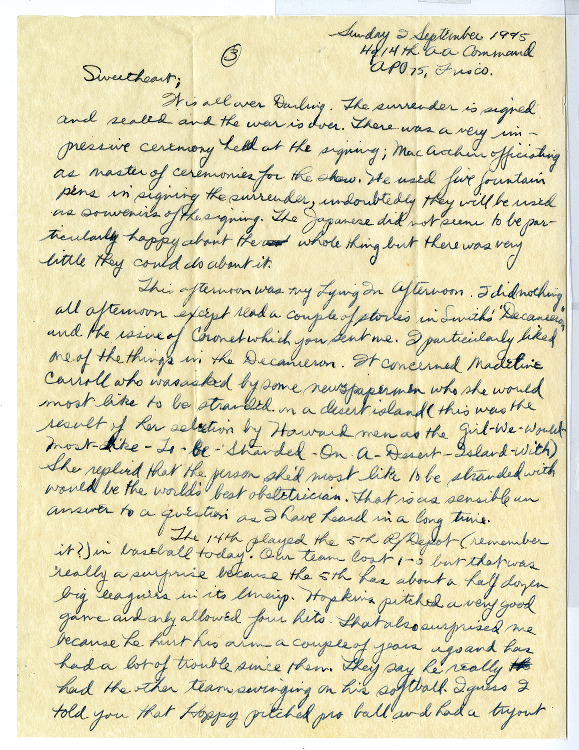 Sunday 2 September 1945
Hq 14th AA Command
APO 75, Frisco.
3
Sweetheart;
It is all over Darling. The surrender is signed
and sealed and the war is over. There was a very im-
pressive ceremony held at the signing; MacArthur officiating
as master of ceremonies for the show. He used five fountain
pens in signing the surrender, undoubtedly they will be used
as souvenirs of the signing. The Japanese did not seem to be par-
ticularly happy about the whole thing but there was very
little they could do about it.
This afternoon was my Lying In afternoon. I did nothing
all afternoon except read a couple of stories in Smith's "Decameron"
and the issue of Coronet which you sent me. I particularly liked
one of the things in the Decameron. It concerned Madeline
Carroll who was asked by some newspapermen who she would
most like to be stranded on a desert island (this was the
result of her selection by Harvard men as the Girl-We-Would-
Most-Like-To-Be-Stranded-On-A-Desert-Island-With)
She replied that the person she'd most like to be stranded with
would be the world's best obstetrician. That is as sensible an
answer to a question as I have heard in a long time.
The 14th played the 5th R/Depot (remember
it?) in baseball today. Our team lost 1-0 but that was
really a surprise because the 5th has about a half dozen
big leaguers in its lineup. Hopkins pitched a very good
game and only allowed four hits. That also surprised me
because he hurt his arm a couple of years ago and has
had a lot of trouble since then. They say he really
had the other team swinging on his softball. I guess I
told you that Hoppy pitched pro ball and had a tryout